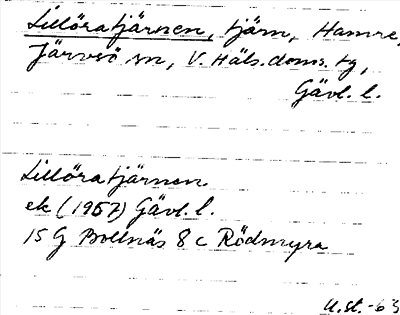 Lillöratjärnen, tjärn, Hamre,
Järvsö sn, V. Häls. doms. tg,
Gävl. l.
Lillöratjärnen
ek (1957) Gävl. l.
15 G Bollnäs 8 c Rödmyra
U.st. -63